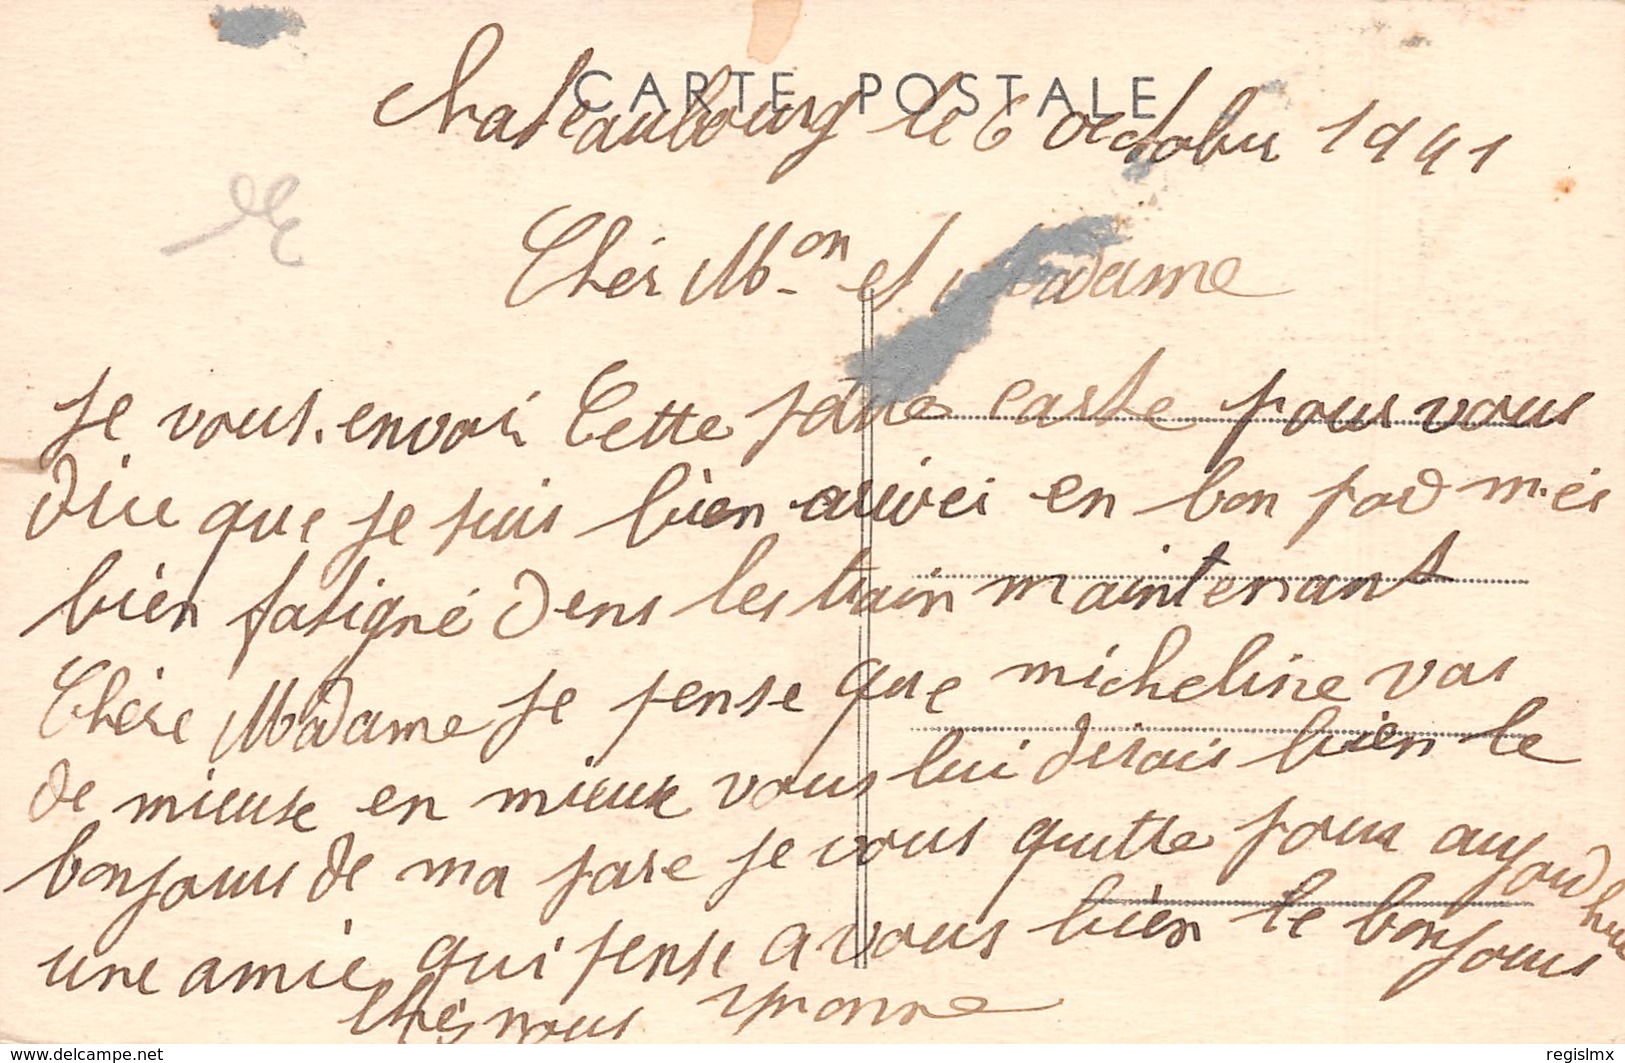 CARTE POSTALE
Chateaubourg le 6 octobre 1941
Chér Mon et Madame
Je vous envoi Cette carte pour vous
dire que je suis bien arivéi en bon
bien fatigné dens les train maintenant
Chère Madame je pense que micheline vas
de mieuse en mieux vous lui derais bien le
bonjours de ma pare je vous quitte pour aujourdhui
une amie qui pense a vous bien le bonjours
Chés nous Yvonne
www.delcampe.net
regislmx